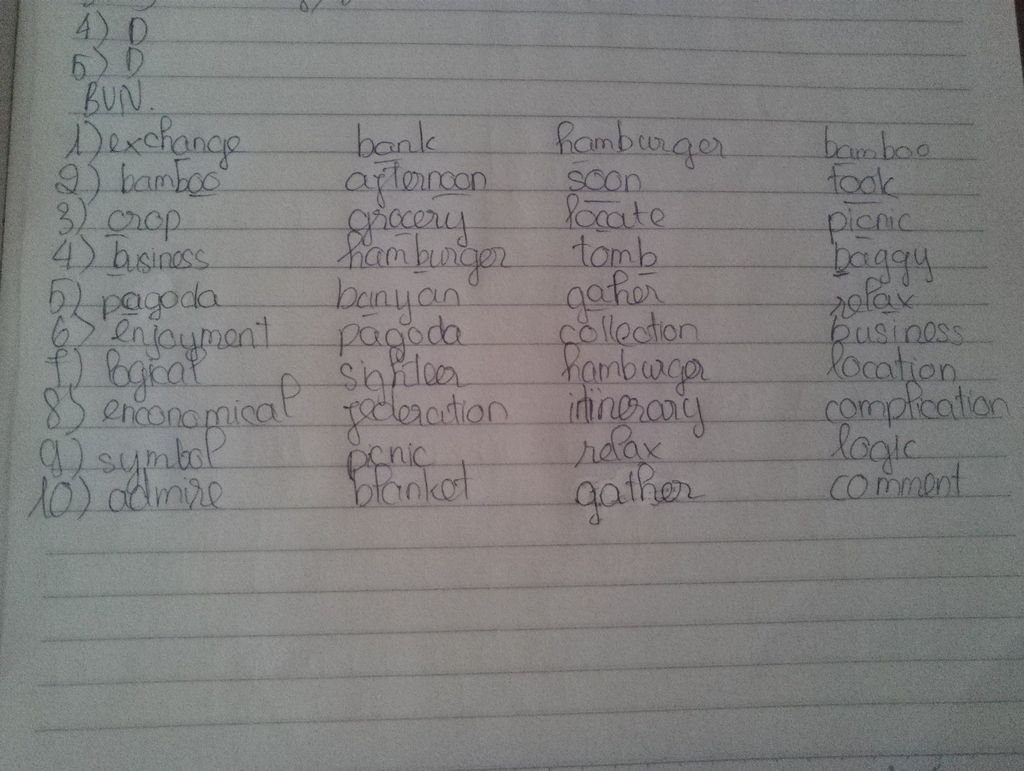 4) D
5) D
BUN.
1) exchange bank hamburger bamboo
2) bamboo afternoon soon took
3) crop grocery locate picnic
4) business hamburger tomb baggy
5) pagoda banyan gaher relax
6) enjayment pagoda collection business
7) logical sightleer hamburger location
8) enconomical federation itinerary complication
9) symbol pcnic relax logic
10) admire blanket gather comment